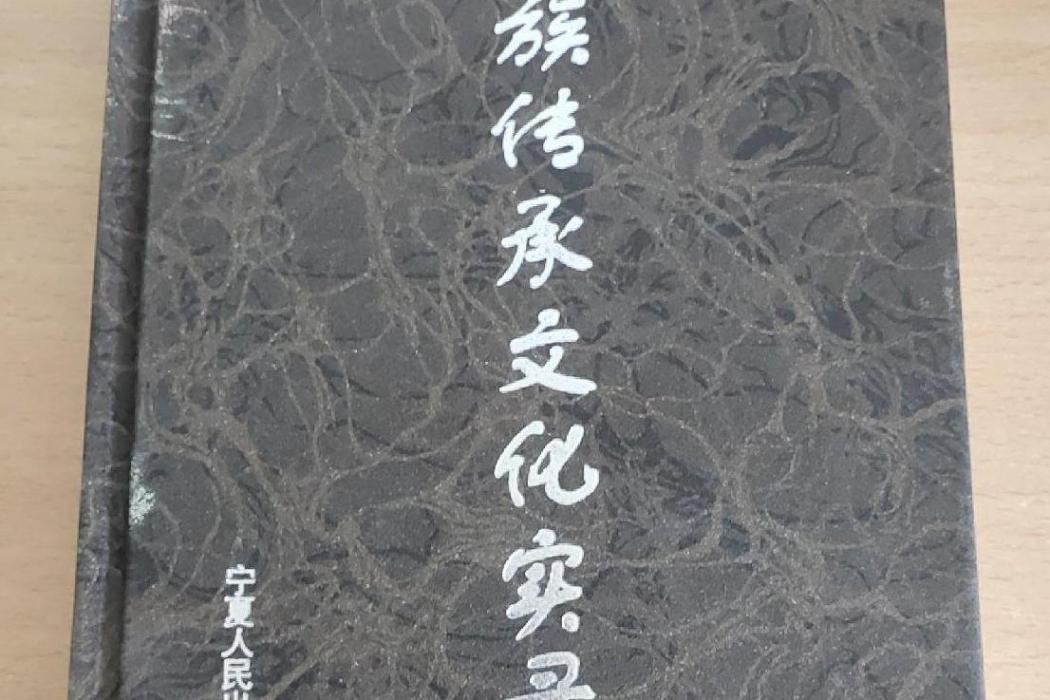 族传承文化实录
宁夏人民出